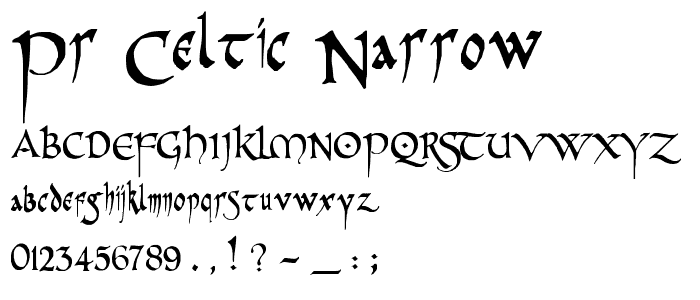 Pr Celtic Narrow
ABCDEFGHIJKLMNOPQRSTUVWXYZ
abcdefghijklmnopqrstuvwxyz
0123456789 . , ! ? - _ : ;